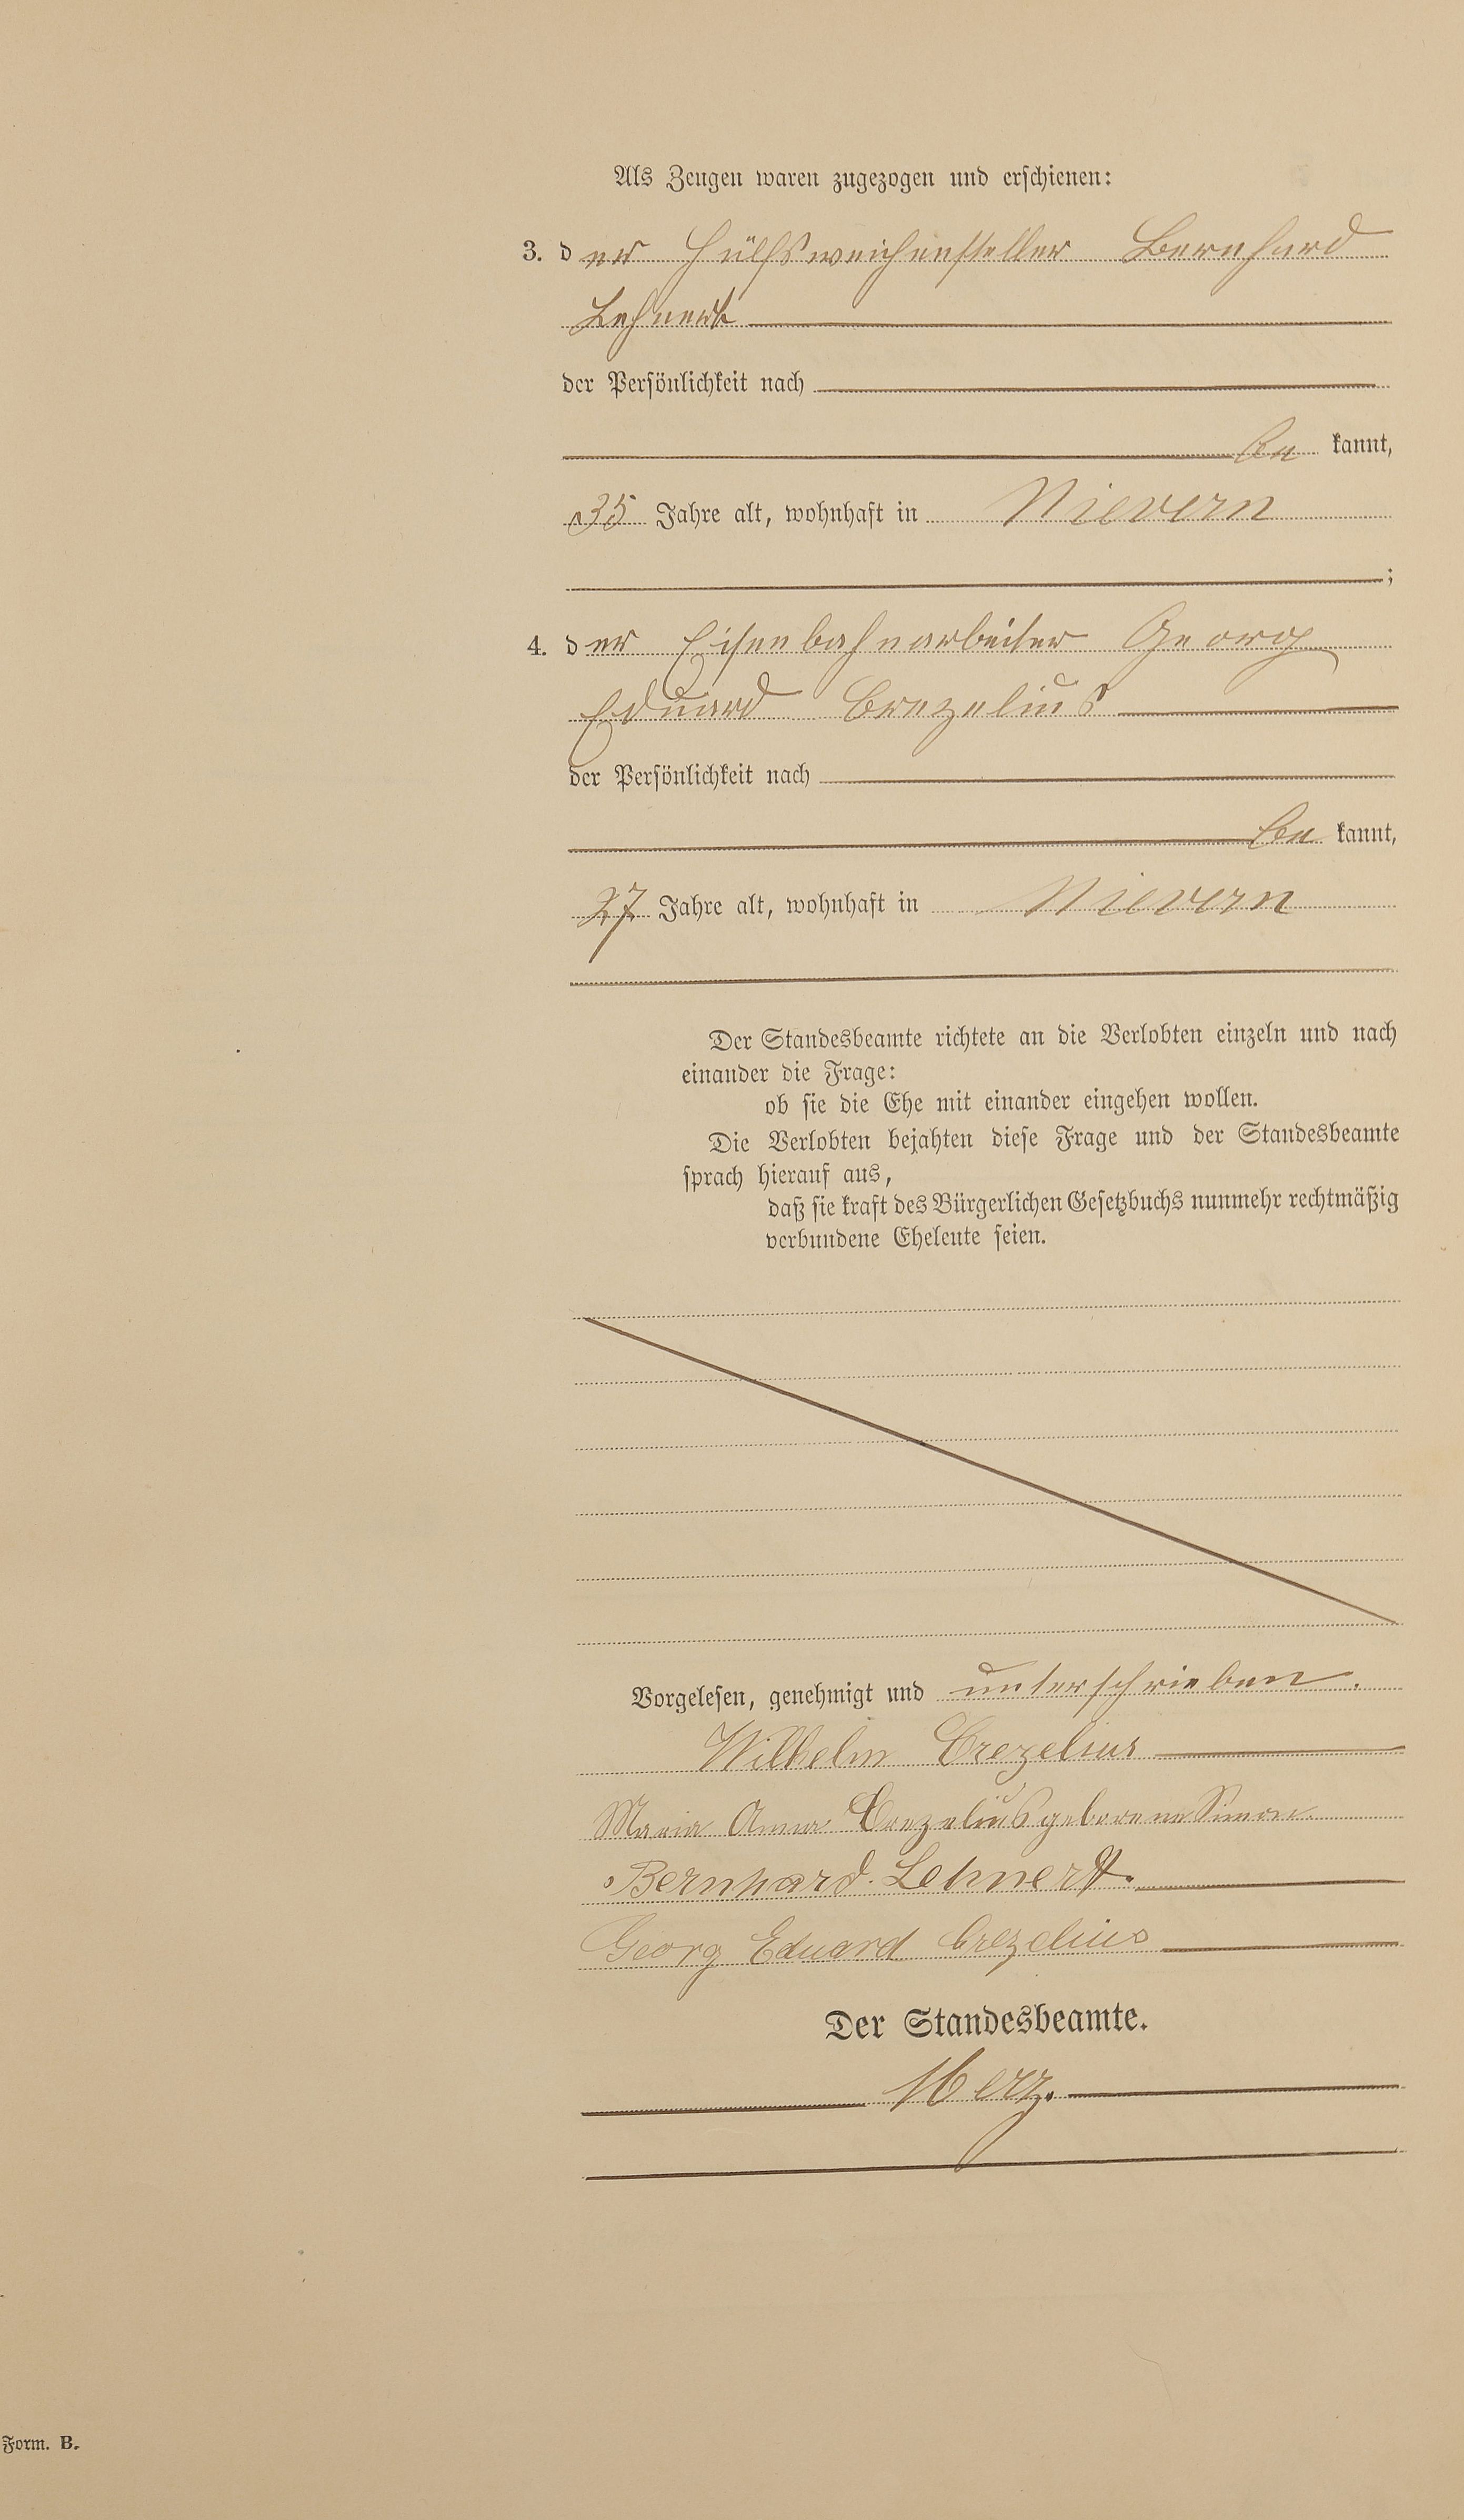 Als Zeugen waren zugezogen und erschienen:
3. der Hülfsweichensteller Bernhard
Lehnert
der Persönlichkeit nach
be kannt,
35 Jahre alt, wohnhaft in Nievern
;
4. der Eisenbahnarbeiter Georg
Eduard Crezelius
der Persönlichkeit nach
be kannt,
27 Jahre alt, wohnhaft in Nievern
Der Standesbeamte richtete an die Verlobten einzeln und nach
einander die Frage:
ob sie die Ehe mit einander eingehen wollen.
Die Verlobten bejahten diese Frage und der Standesbeamte
sprach hierauf aus,
daß sie kraft des Bürgerlichen Gesetzbuchs nunmehr rechtmäßig
verbundene Eheleute seien.
Vorgelesen, genehmigt und unterschrieben.
Wilhelm Crezelius
Maria Anna Crezelius geborene Simon
Bernhard. Lehnert.
Georg Eduard Crezelius
Der Standesbeamte.
Merz.
Form. B.